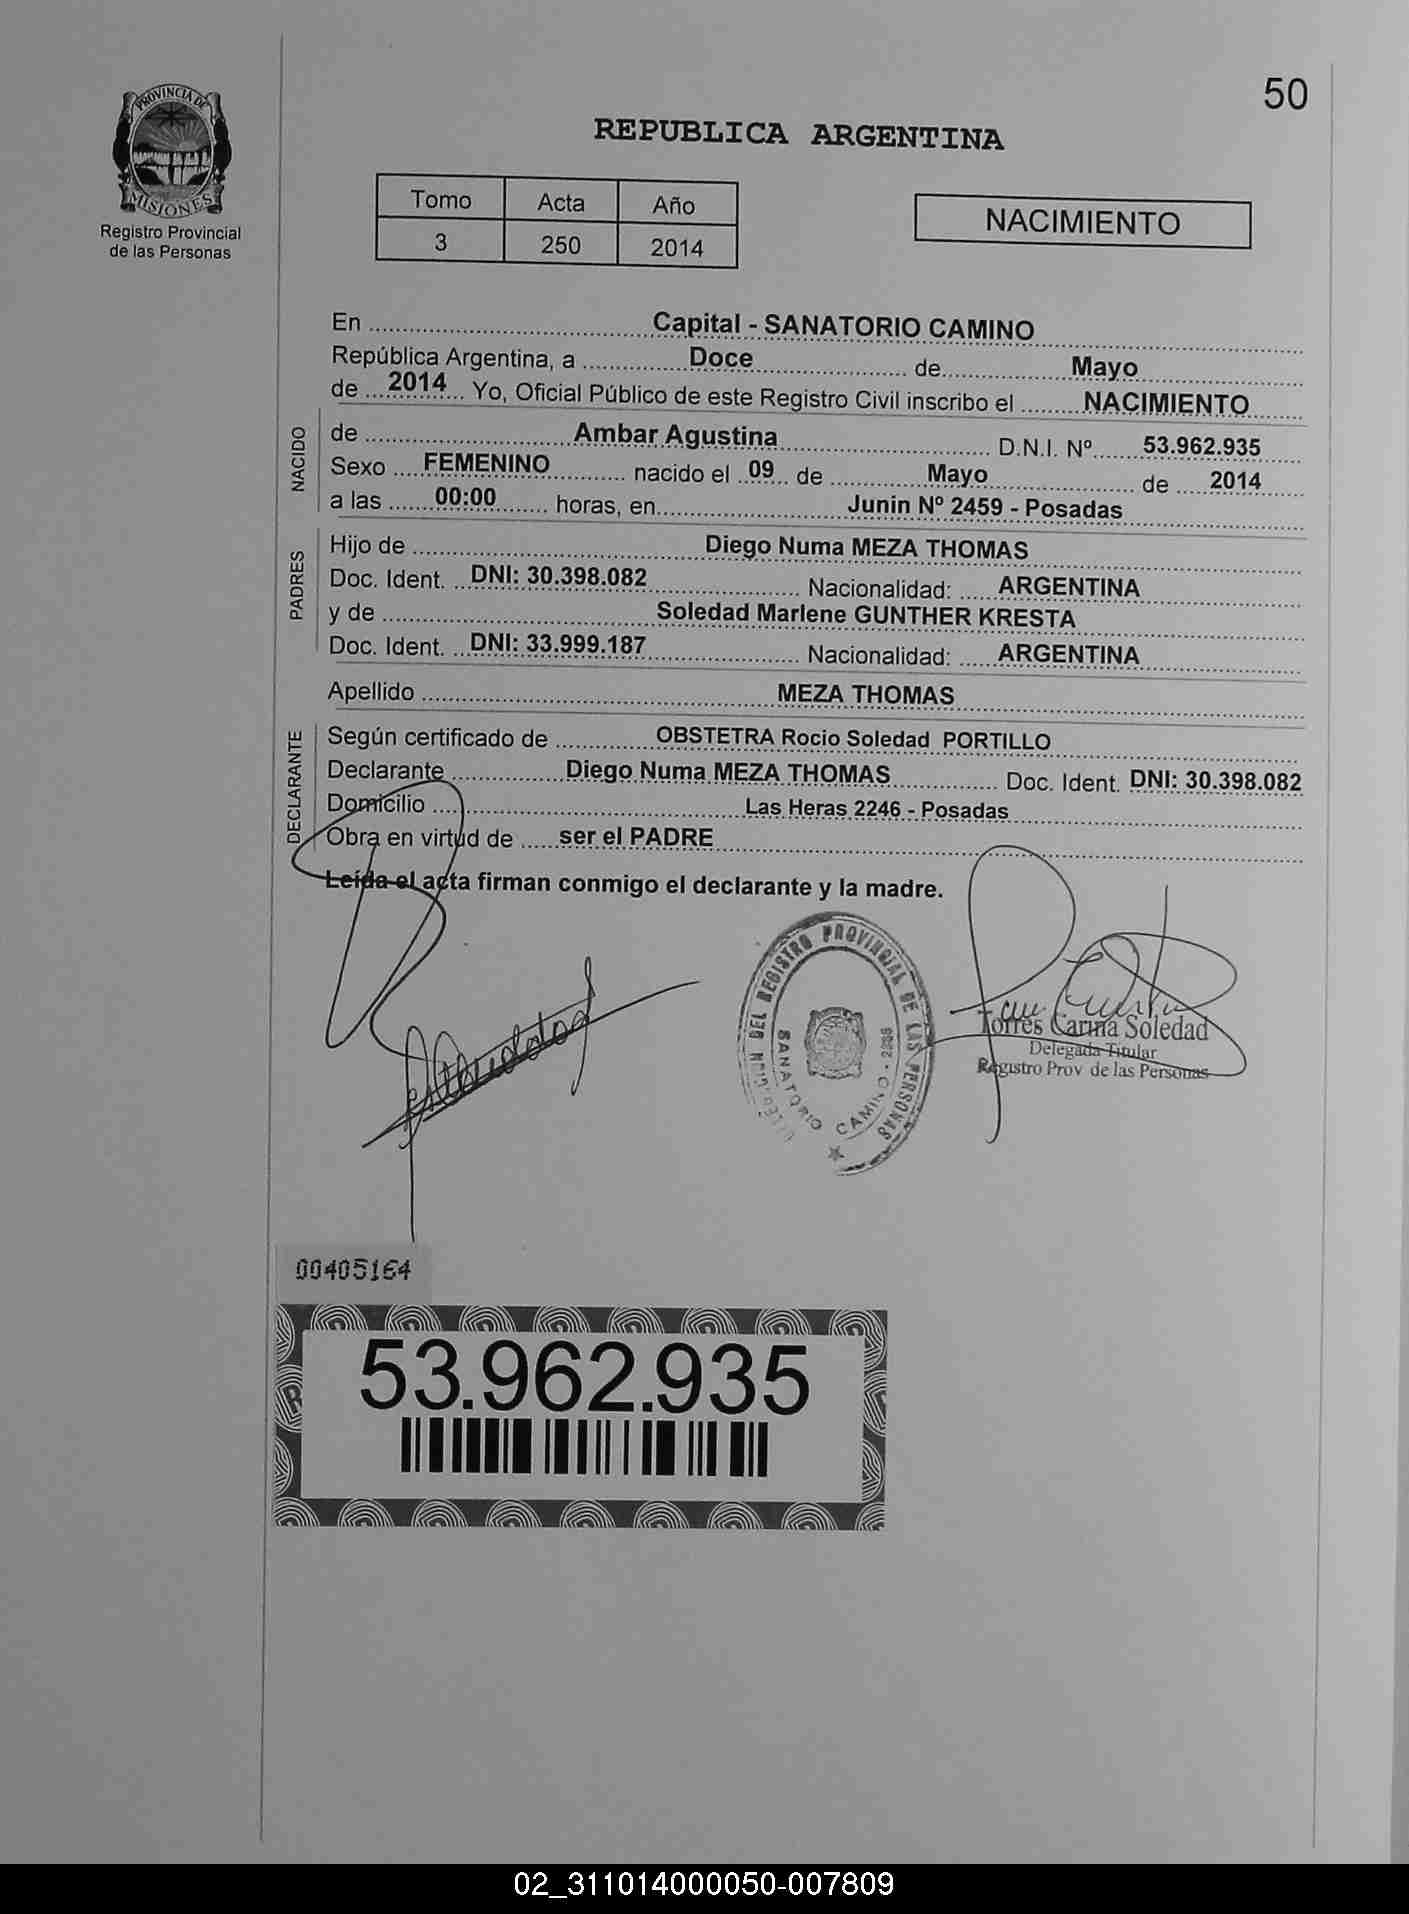 50
PROVINCIA DE
MISIONES
Registro Provincial
de las Personas
REPUBLICA ARGENTINA
Tomo Acta Año
3 250 2014
NACIMIENTO
En Capital - SANATORIO CAMINO
República Argentina, a Doce de Mayo
de 2014 Yo, Oficial Público de este Registro Civil inscribo el NACIMIENTO
NACIDO
de Ambar Agustina D.N.I. Nº 53.962.935
Sexo FEMENINO nacido el 09 de Mayo de 2014
a las 00:00 horas, en Junin Nº 2459 - Posadas
PADRES
Hijo de Diego Numa MEZA THOMAS
Doc. Ident. DNI: 30.398.082 Nacionalidad: ARGENTINA
y de Soledad Marlene GUNTHER KRESTA
Doc. Ident. DNI: 33.999.187 Nacionalidad: ARGENTINA
Apellido MEZA THOMAS
DECLARANTE
Según certificado de OBSTETRA Rocio Soledad PORTILLO
Declarante Diego Numa MEZA THOMAS Doc. Ident. DNI: 30.398.082
Domicilio Las Heras 2246 - Posadas
Obra en virtud de ser el PADRE
Leída el acta firman conmigo el declarante y la madre.
DEL REGISTRO PROVINCIAL DE LAS PERSONAS
SANATORIO CAMINO
Torres Carina Soledad
Delegada Titular
Registro Prov de las Personas
00405164
53.962.935
02_311014000050-007809